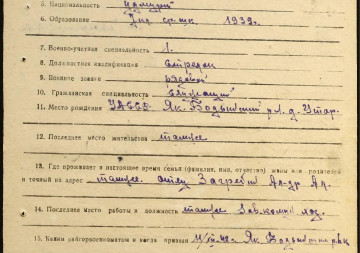 5. Национальность удмурт
6. Образование ср. шк 1939.
7. Военно-учетная специальность 1.
8. Должностная квалификация стрелок
9. Воинское звание рядовой
10. Гражданская специальность
11. Место рождения УАССР Як. Бодьинский р. д.
12. Последнее место жительства также
13. Где проживает в настоящее время семья (фамилия, имя, отчество) жены или родителей
и точный их адрес также отец
14. Последнее место работы и должность также
15. Каким райгорвоенкоматом и когда призван Як Бодьинским рвк